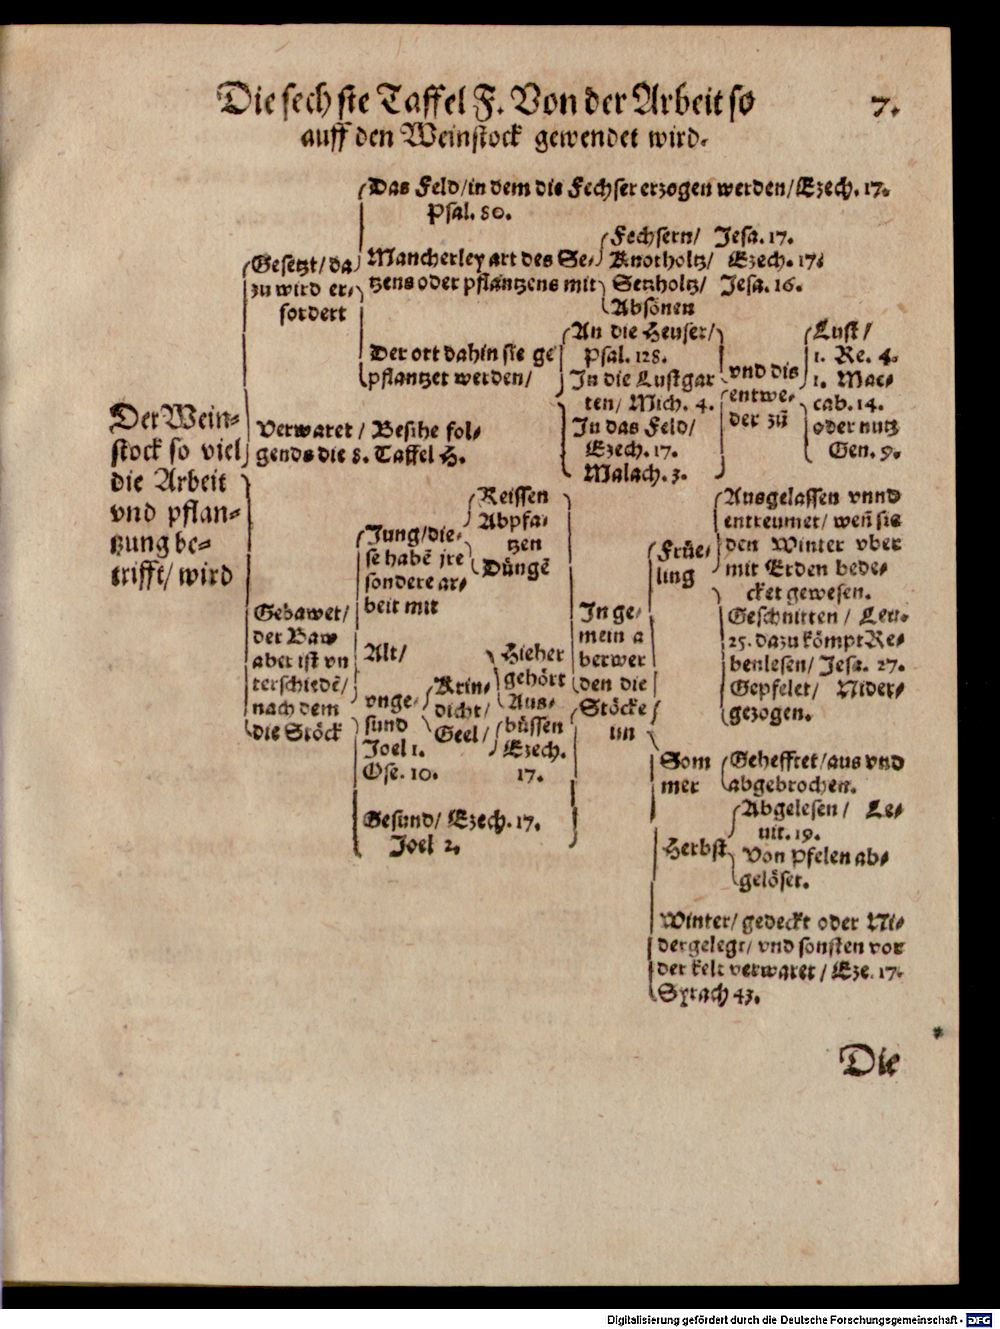 Die sechste Taffel F. Von der Arbeit so
7.
auff den Weinstock gewendet wird.
Der Wein⸗
stock so viel
die Arbeit
vnd pflan⸗
tzung be⸗
trifft/ wird
Gesetzt/ da
zu wird er⸗
fordert
Das Feld/ in dem die Fechser erzogen werden/ Ezech. 17.
Psal. 80.
Mancherley art des Se⸗
tzens oder pflantzens mit
Fechsern/ Jesa. 17.
Knotholtz/ Ezech. 17.
Setzholtz/ Jesa. 16.
Absönen
Der ort dahin sie ge
pflantzet werden/
An die Heuser/
Psal. 128.
In die Lustgar
ten/ Mich. 4.
In das Feld/
Ezech. 17.
Malach. 3.
vnd dis
entwe⸗
der zů
Lust/
1. Re. 4.
1. Mac⸗
cab. 14.
oder nutz
Gen. 9.
Verwaret/ Besihe fol⸗
gends die 8. Taffel H.
Gebawet/
der Baw
aber ist vn
terschiedē/
nach dem
die Stöck
Jung/ die⸗
se habē jre
sondere ar⸗
beit mit
Reissen
Abpfa⸗
tzen
Düngē
Alt/
vnge⸗
sund
Joel 1.
Ose. 10.
Krin⸗
dicht/
Geel/
Hieher
gehört
Aus⸗
büssen
Ezech.
17.
Gesund/ Ezech. 17.
Joel 2.
In ge⸗
mein a
ber wer
den die
Stöcke
im
Früe⸗
ling
Ausgelassen vnnd
entreumet/ weñ sie
den Winter vber
mit Erden bede⸗
cket gewesen.
Geschnitten/ Leu⸗
25. dazu kömpt Re⸗
benlesen/ Jesa. 27.
Gepfelet/ Nider⸗
gezogen.
Som
mer
Gehefftet/ aus vnd
abgebrochen.
Herbst
Abgelesen/ Le⸗
uit. 19.
Von Pfelen ab⸗
gelöset.
Winter/ gedeckt oder Ni⸗
dergelegt/ vnd sonsten vor
der kelt verwaret/ Eze. 17.
Syrach 43.
Die
Digitalisierung gefördert durch die Deutsche Forschungsgemeinschaft - DFG